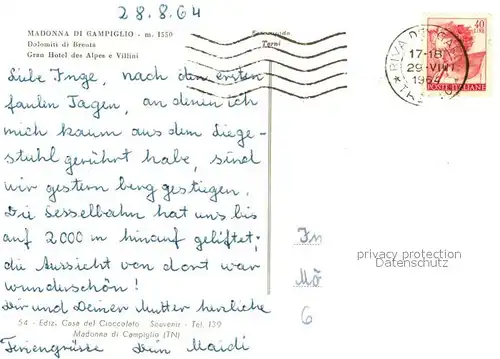 28.8.64
MADONNA DI CAMPIGLIO - m. 1550
Dolomiti di Brenta
Gran Hotel des Alpes e Villini
Terni
40
LIRE
RIVA DEL
17-18
29-VIII
1964
POSTE ITALIANE
Liebe Inge, nach den ersten
faulen Tagen, an denen ich
mich kaum aus dem Liege-
stuhl gerührt habe, sind
wir gestern berg gestiegen.
Die Sesselbahn hat uns bis
auf 2000 m hinauf geliftet;
die Aussicht von dort war
wunderschön!
Dir und Deiner Mutter herzliche
Feriengrüsse Maidi
In
Mö
6
privacy protection
Datenschutz
54 - Ediz. Casa del Cioccolato Souvenir - Tel. 139
Madonna di Campiglio (TN)